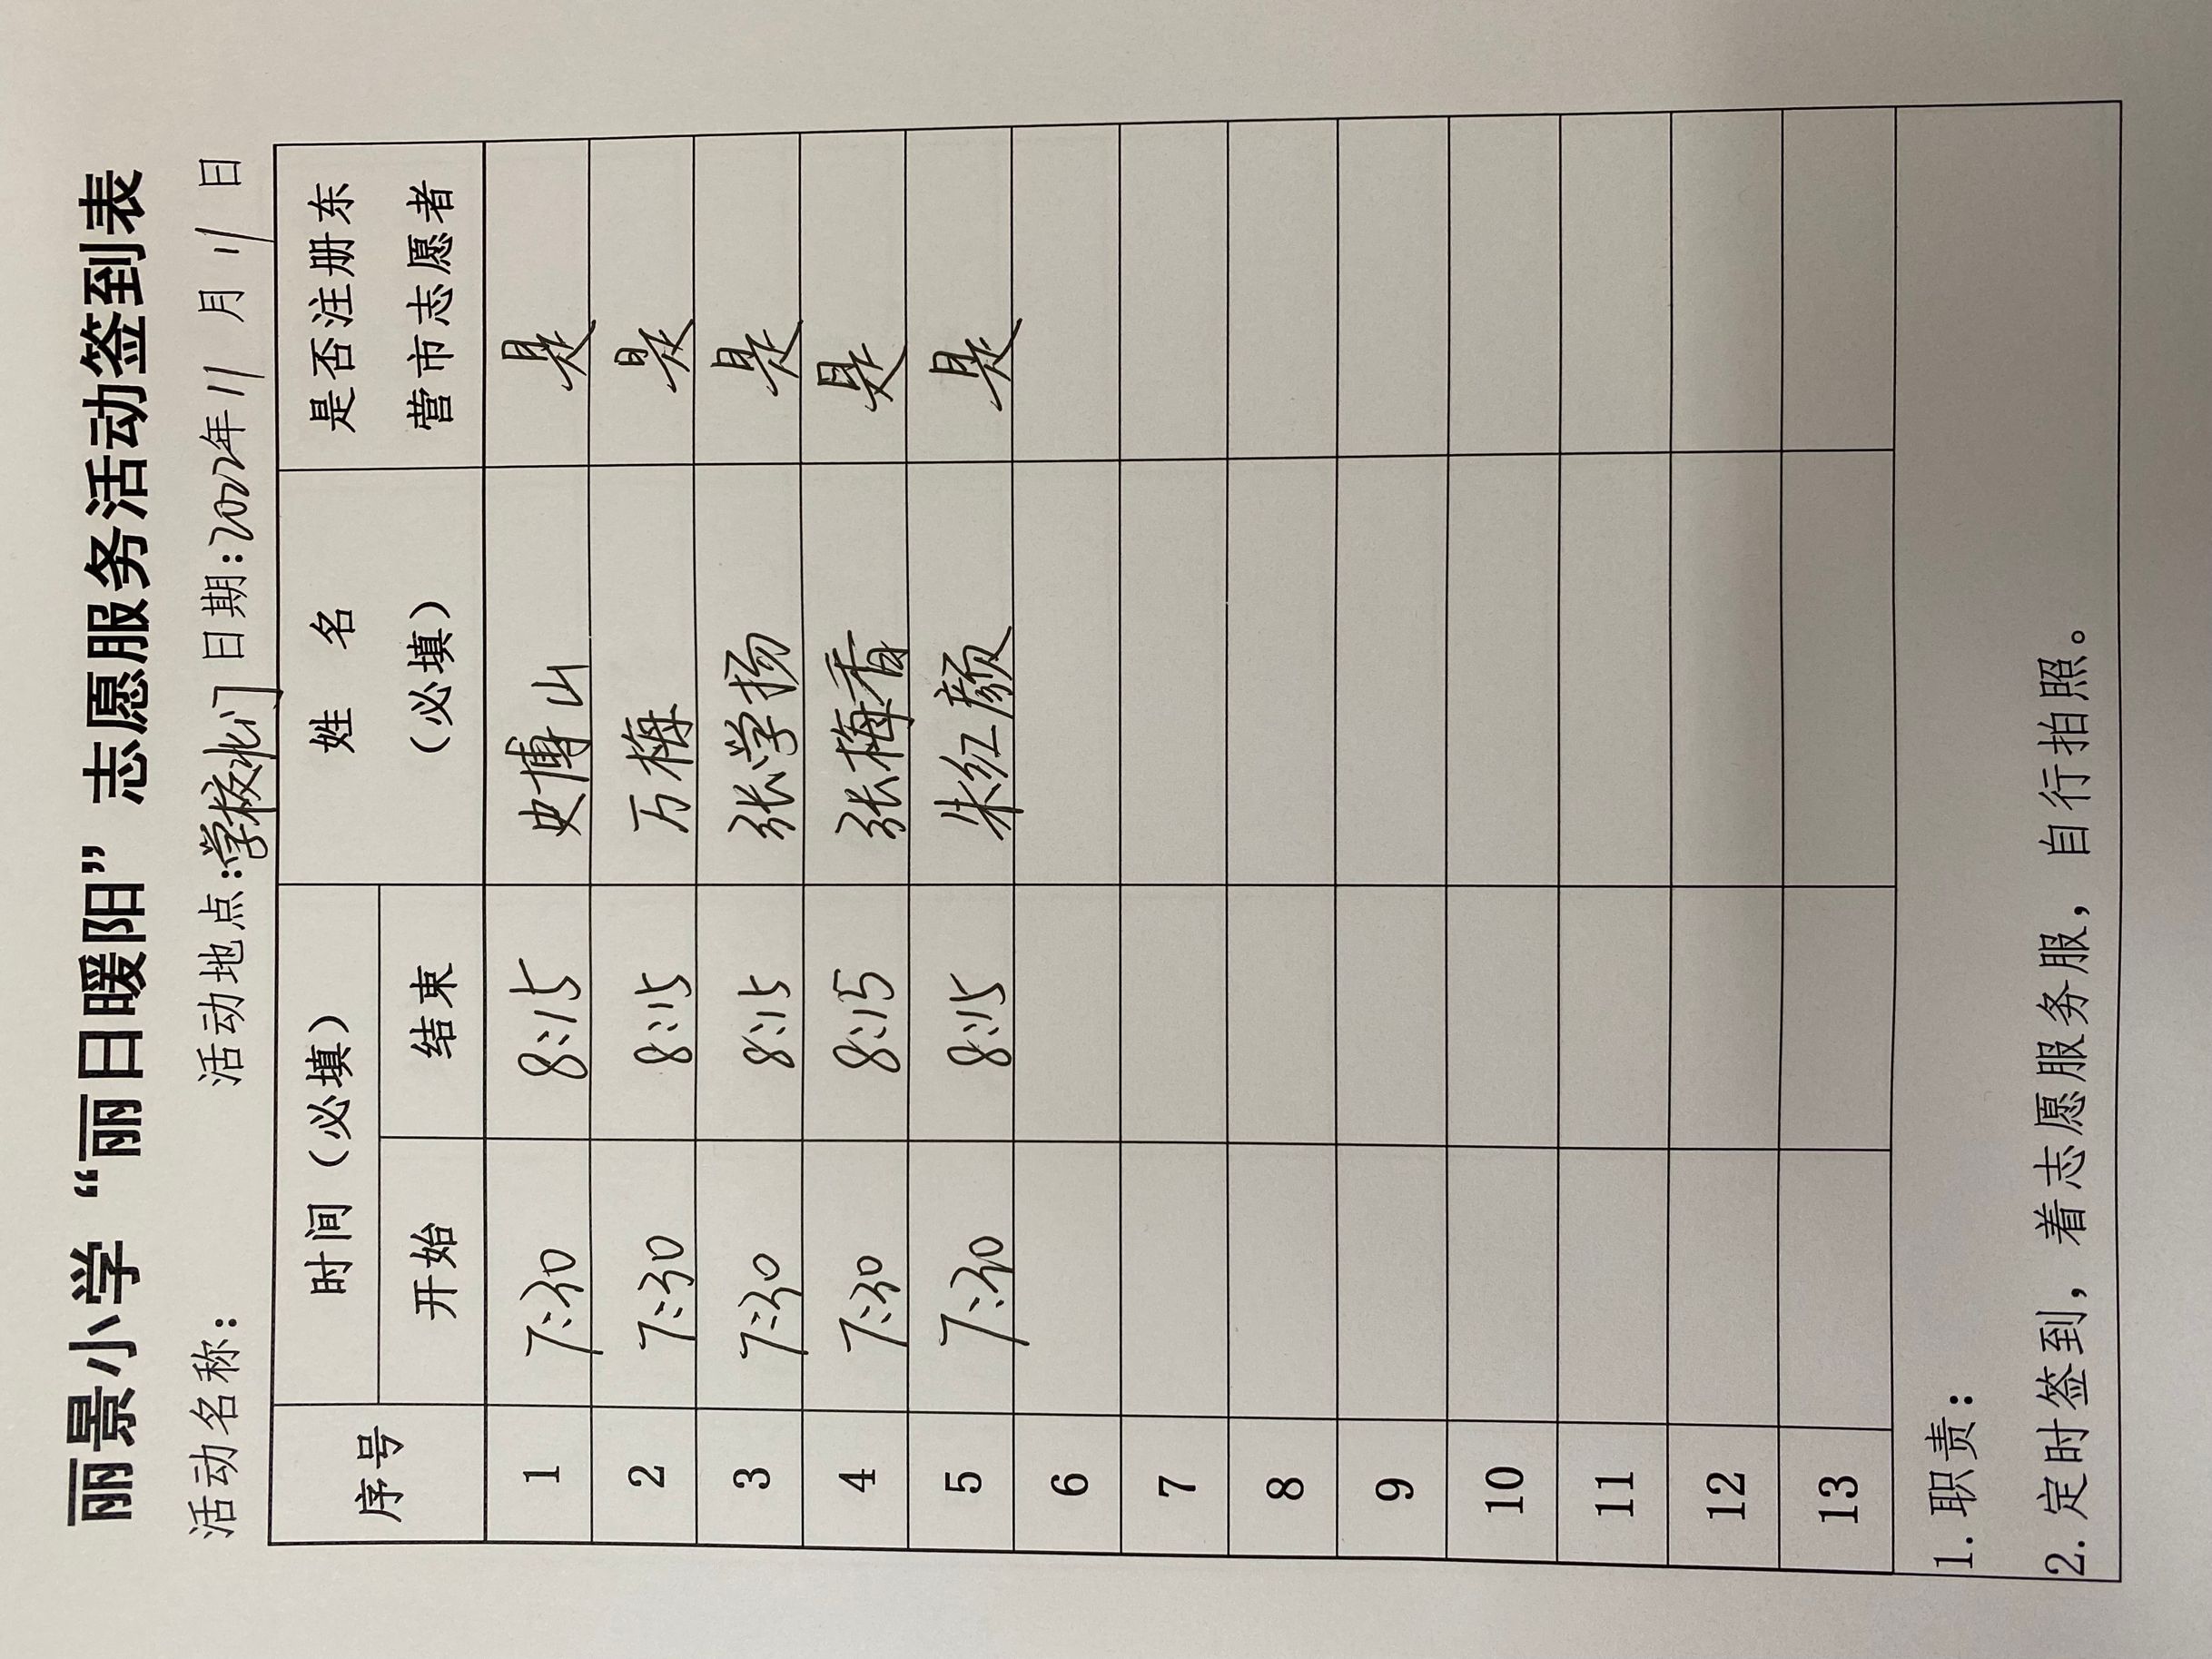 丽景小学“丽日暖阳”志愿服务活动签到表
活动名称： 活动地点：学校北门 日期：2022年11月11日
序号 时间（必填） 姓 名（必填） 是否注册东营市志愿者
开始 结束
1 7:30 8:15 史博山 是
2 7:30 8:15 万梅 是
3 7:30 8:15 张学扬 是
4 7:30 8:15 张梅香 是
5 7:30 8:15 朱红颜 是
6
7
8
9
10
11
12
13
1.职责：
2.定时签到，着志愿服务服，自行拍照。